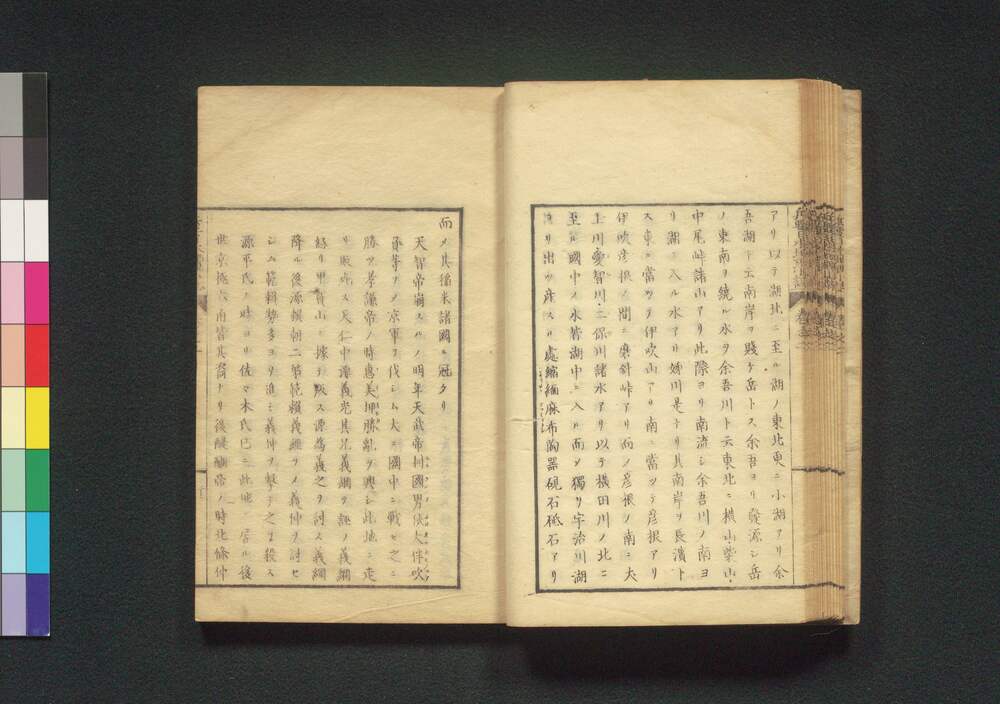 アリ以テ湖北ニ至ル湖ノ東北更ニ小湖アリ余
吾湖ト云南岸ヲ賤ケ岳トス余吾ヨリ發源シ岳
ノ東南ヲ繞ル水ヲ余吾川ト云東北ニ横山・柴山・
中尾峠諸山アリ此際ヨリ南流シ余吾川ノ南ヨ
リ湖ニ入ル水アリ姉川是ナリ其南岸ヲ長濱ト
ス東ニ當ツテ伊吹山アリ南ニ當ツテ彦根アリ
伊吹彦根ノ間ニ磨針峠アリ而ノ彦根ノ南ニ犬
上川愛智川・仁保川諸水アリ以テ横田川ノ北ニ
至ル國中ノ水皆湖中ニ入ル而メ獨リ宇治川湖
ヨリ出ツ産スル處縮緬麻布陶器硯石砥石アリ
而メ其猶米諸國ニ冠タリ
天智帝崩スルノ明年天武帝州國男依大伴吹
負等ヲメ京軍ヲ伐シム大ニ國中ニ戰ヒ之ニ
勝ツ孝謙帝ノ時惠美押勝亂ヲ興シ此地ニ走
リ敗死ス天仁中源義光其兄義綱ヲ誣ノ義綱
終リ甲賀山ニ據テ叛ス源為義之ヲ討ス義綱
降ル後源頼朝二弟範頼義經ヲメ義仲ヲ討セ
シム範頼勢多ヨリ進ミ義仲ヲ撃テ之ヲ殺ス
源平氏ノ時ヨリ佐々木氏已ニ此地ニ居ル後
世京極六角皆其裔ナリ後醍醐帝ノ時北條仲